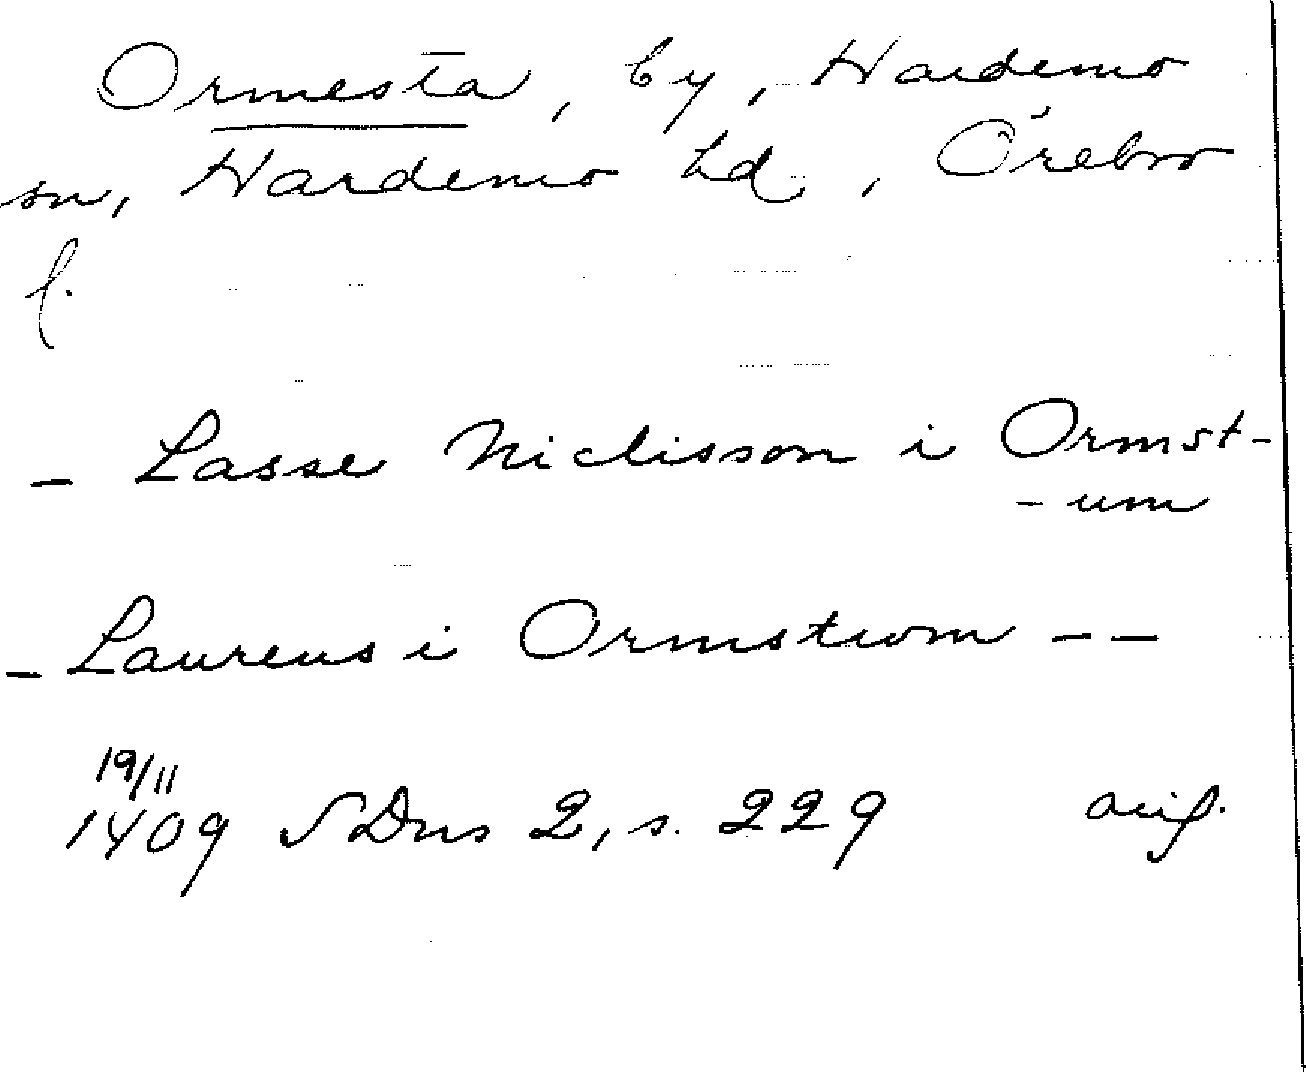 Ormesta, by, Hardemo
sn, Hardemo hd, Örebro
l.
- Lasse Niclisson i Ormst-
- um
- Laurens i Ormstwm - -
19/11
1409 SDns 2, s. 229 avig.